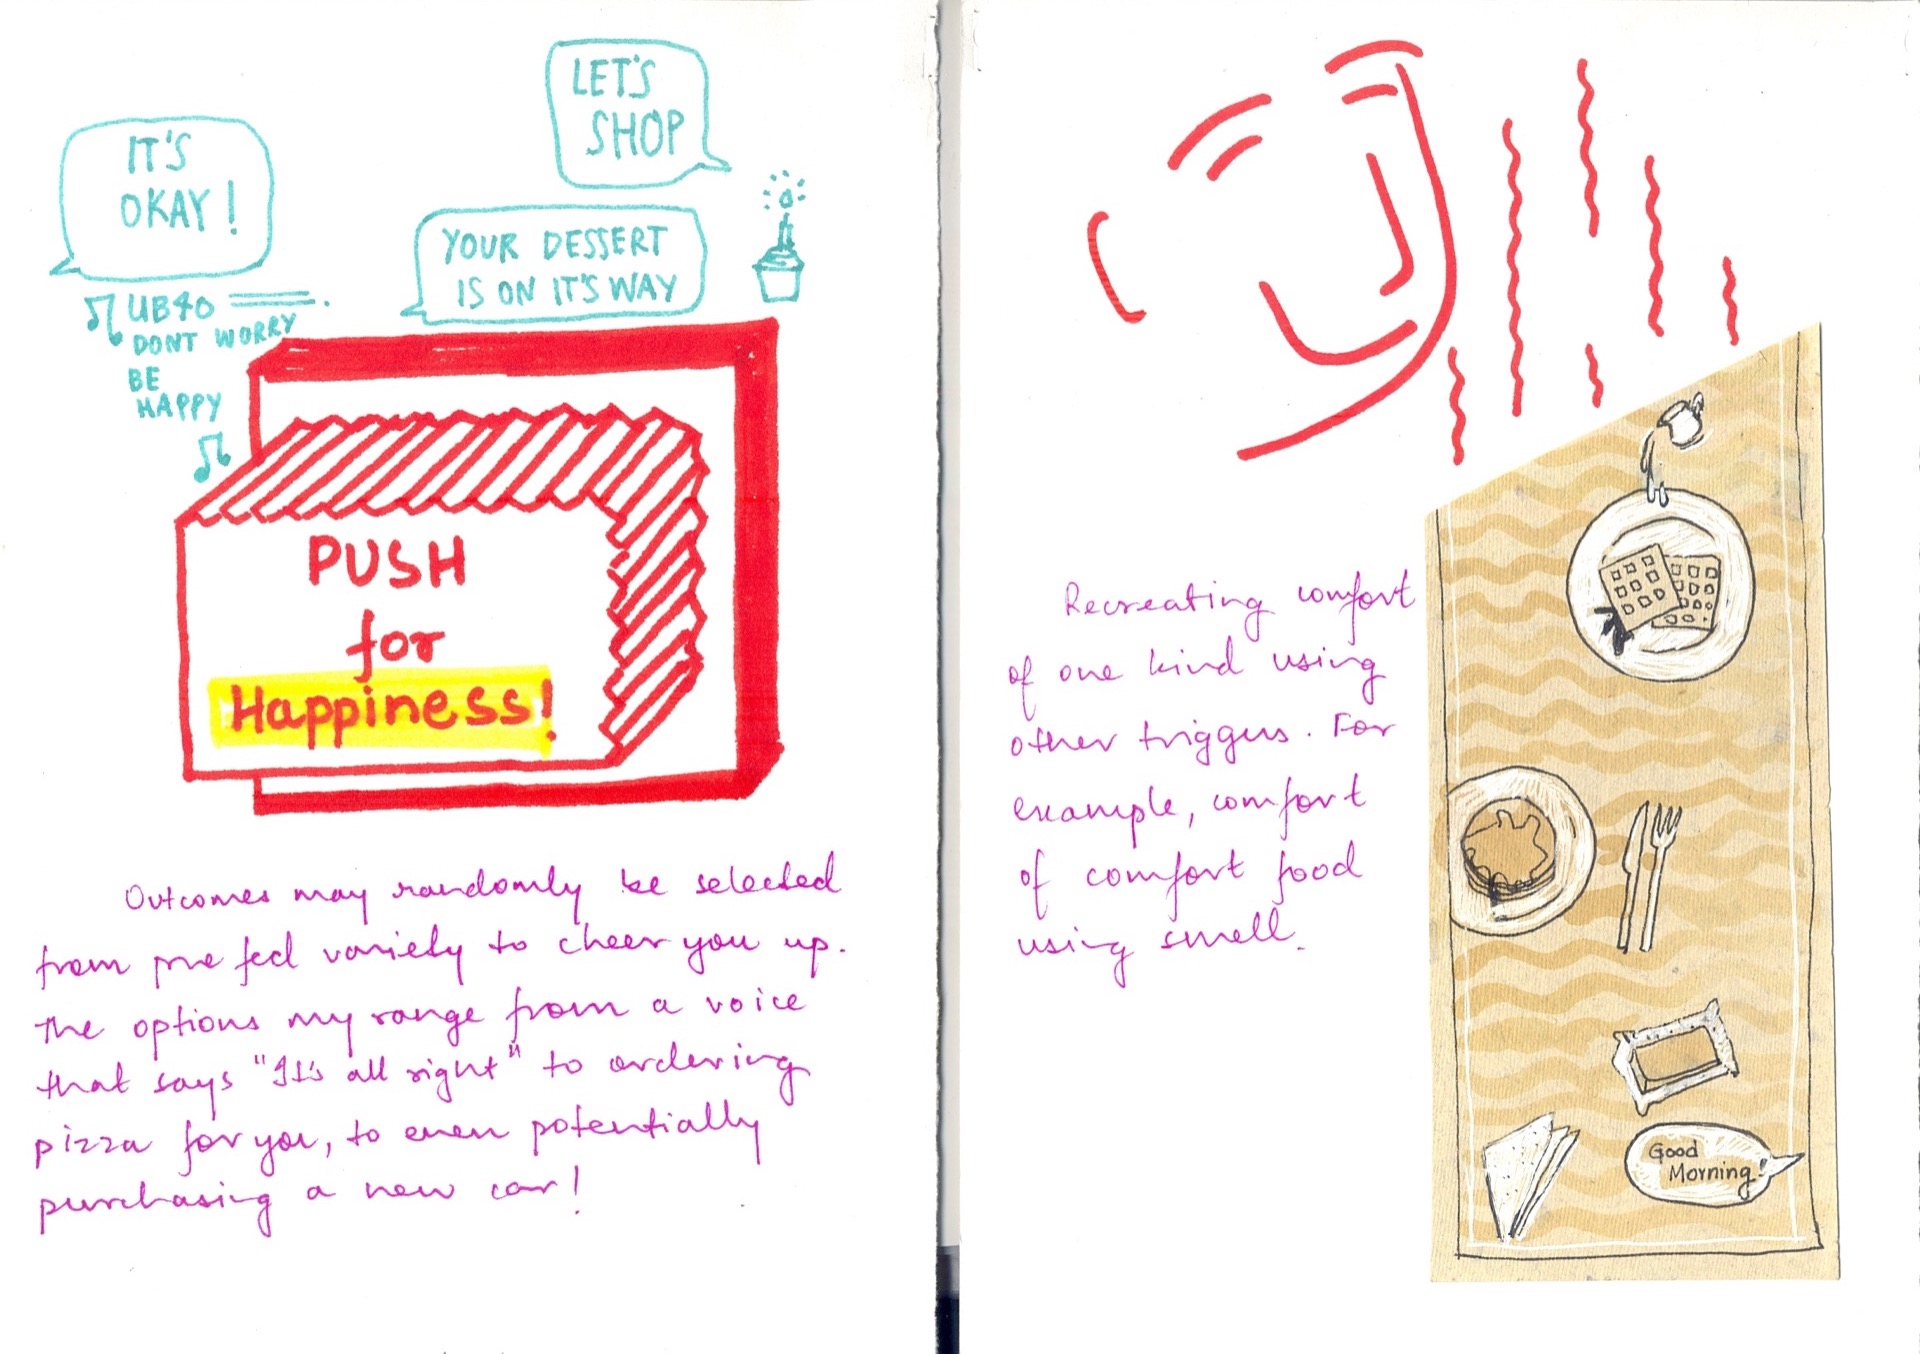 IT'S
OKAY!
LET'S
SHOP
YOUR DESSERT
IS ON IT'S WAY
UB40
DONT WORRY
BE
HAPPY
PUSH
for
Happiness!
Outcomes may randomly be selected
from pre fed variety to cheer you up.
The options my range from a voice
that says "It's all right" to ordering
pizza for you, to even potentially
purchasing a new car!
Recreating comfort
of one kind using
other triggers. For
example, comfort
of comfort food
using smell.
Good
Morning!